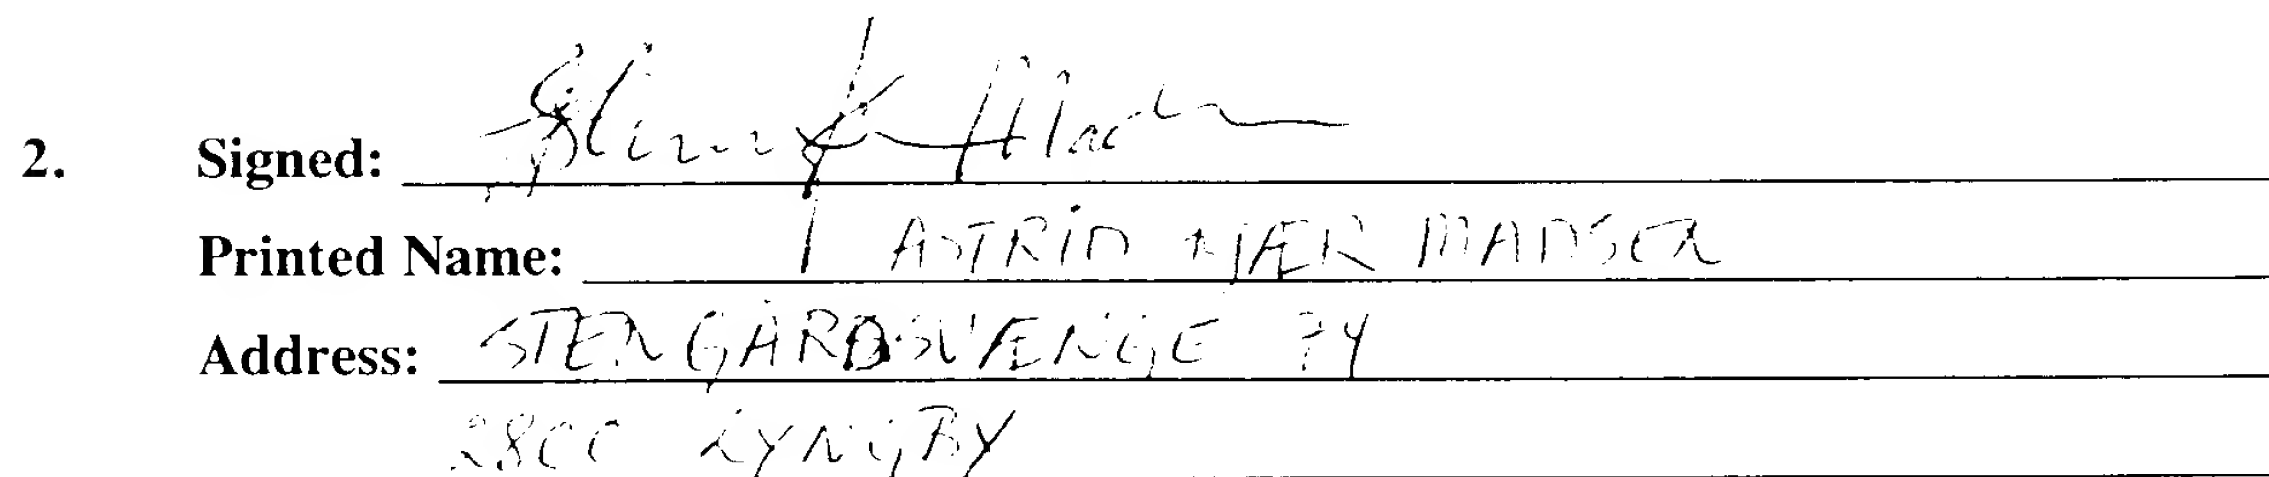 2. Signed:
Printed Name: ASTRID KJÆR MADSEN
Address: STENGARDSVÆNGE 74
2800 LYNGBY